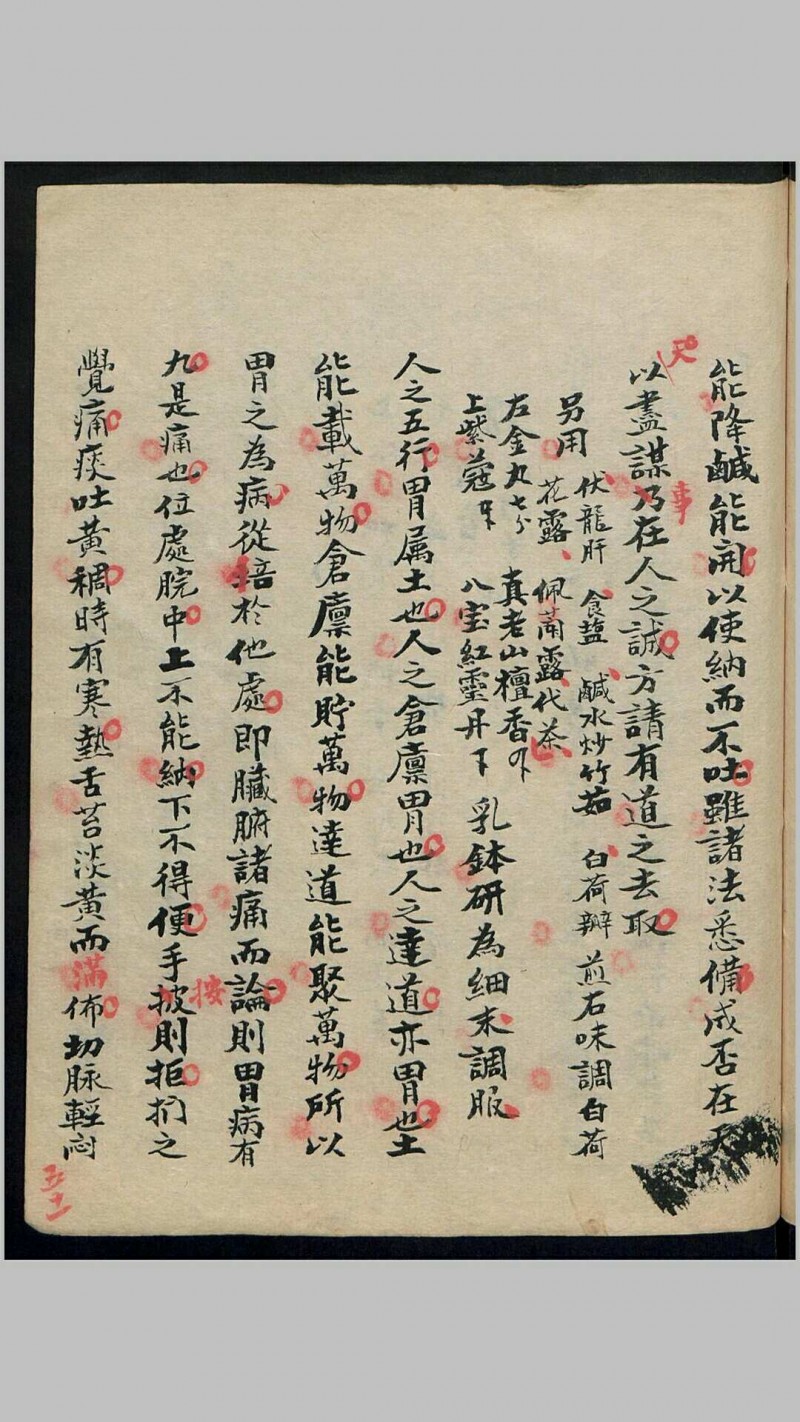 能降鹹能開以使納而不吐雖諸法悉備成否在天
天
以盡謀乃在人之誠方請有道之去取
事
另用 伏龍肝 食盐 鹹水炒竹茹 白荷瓣 煎右味調白荷
花露佩蘭露代茶
左金丸七分 真老山檀香
上紫蔻 八宝紅靈丹 乳鉢研為細末調服
人之五行胃属土也人之倉廪胃也人之達道亦胃也土
能載萬物倉廪能貯萬物達道能聚萬物所以
胃之為病從 於他處即臟腑諸痛而論則胃病有
九是痛也位處脘中上不能納下不得便手披則拒捫之
按
覺痛痰吐黃稠時有寒熱舌苔淡黃而佈切脉輕悶
滿
五十一